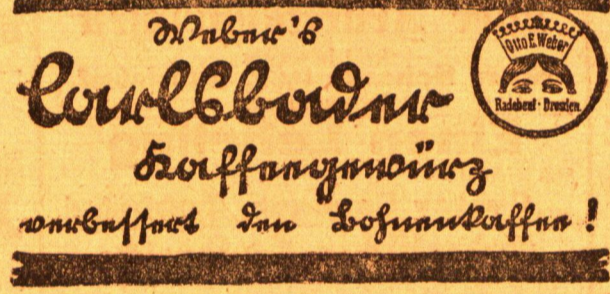 Weber's
Carlsbader
Kaffeegewürz
verbessert den Bohnenkaffee!
Otto E. Weber
Radebeul-Dresden.